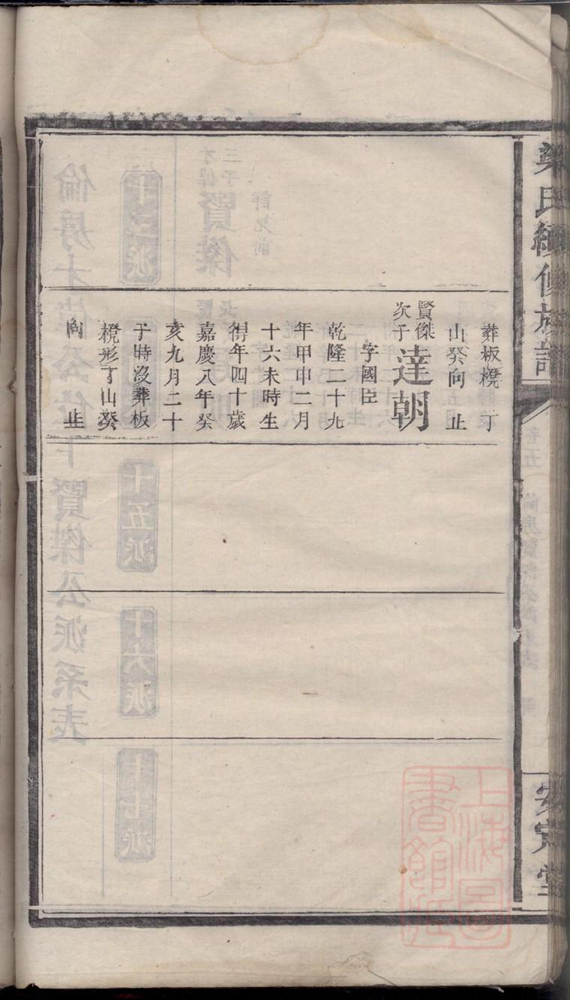 梁氏續修族譜
安定堂
葬板櫈丁
山癸向止
賢傑
次子
達朝
字國臣
乾隆二十九
年甲申二月
十六未時生
得年四十歲
嘉慶八年癸
亥九月二十
子時沒葬板
櫈形丁山癸
向止
上海圖書館藏